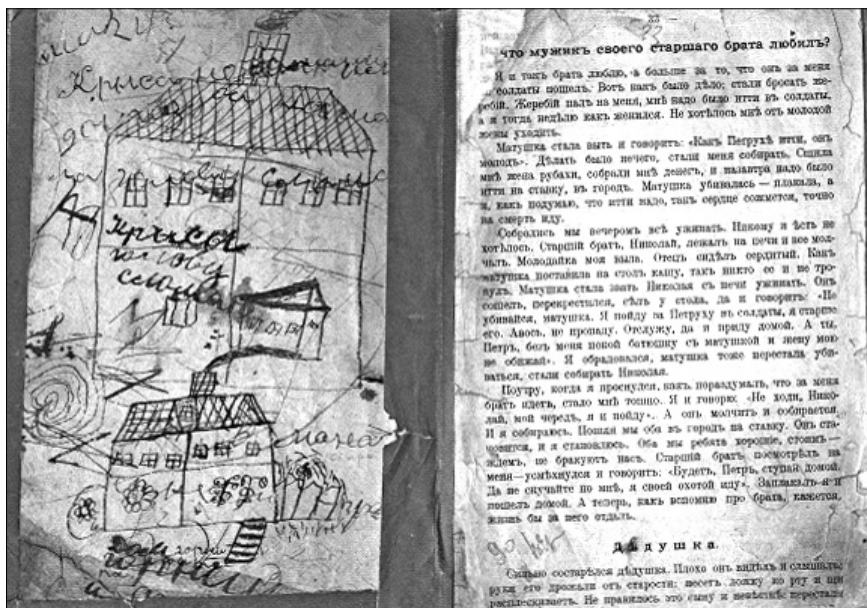 Крыса
Крысы
голову
33 —
что мужикъ своего старшаго брата любилъ?
Я и такъ брата люблю, а больше за то, что онъ за меня
солдаты пошелъ. Вотъ какъ было дѣло; стали бросать же-
ребій. Жеребій палъ на меня, мнѣ надо было итти въ солдаты,
а я тогда недѣлю какъ женился. Не хотѣлось мнѣ отъ молодой
жены уходить.
Матушка стала выть и говоритъ: «Какъ Петрухѣ итти, онъ
молодъ». Дѣлать было нечего, стали меня собирать. Сшила
мнѣ жена рубахи, собрали мнѣ денегъ, и назавтра надо было
итти на ставку, въ городъ. Матушка убивалась — плакала, а
я, какъ подумаю, что итти надо, такъ сердце сожмется, точно
на смерть иду.
Собрались мы вечеромъ всѣ ужинать. Никому и ѣсть не
хотѣлось. Старшій братъ, Николай, лежалъ на печи и все мол-
чалъ. Молодайка моя выла. Отецъ сидѣлъ сердитый. Какъ
матушка поставила на столъ кашу, такъ никто ее и не тро-
нулъ. Матушка стала звать Николая съ печи ужинать. Онъ
сошелъ, перекрестился, сѣлъ у стола, да и говоритъ: «Не
убивайся, матушка. Я пойду за Петруху въ солдаты, я старше
его. Авось, не пропаду. Отслужу, да и приду домой. А ты,
Петръ, безъ меня покой батюшку съ матушкой и жену мою
не обижай». Я обрадовался, матушка тоже перестала уби-
ваться, стали собирать Николая.
Поутру, когда я проснулся, какъ пораздумалъ, что за меня
братъ идетъ, стало мнѣ тошно. Я и говорю: «Не ходи, Нико-
лай, мой чередъ, я и пойду». А онъ молчитъ и собирается.
И я собираюсь. Пошли мы оба въ городъ на ставку. Онъ ста-
новится, и я становлюсь. Оба мы ребята хорошіе, стоимъ —
ждемъ, не бракуютъ насъ. Старшій братъ посмотрѣлъ на
меня—усмѣхнулся и говоритъ: «Будетъ, Петръ, ступай домой.
Да не скучайте по мнѣ, я своей охотой иду». Заплакалъ я и
пошелъ домой. А теперь, какъ вспомню про брата, кажется,
жизнь бы за него отдалъ.
Дѣдушка
Сильно состарѣлся дѣдушка. Плохо онъ видѣлъ и слышалъ;
руки его дрожали отъ старости: несетъ ложку ко рту и
расплескиваетъ. Не нравилось это сыну и невѣсткѣ: перестали